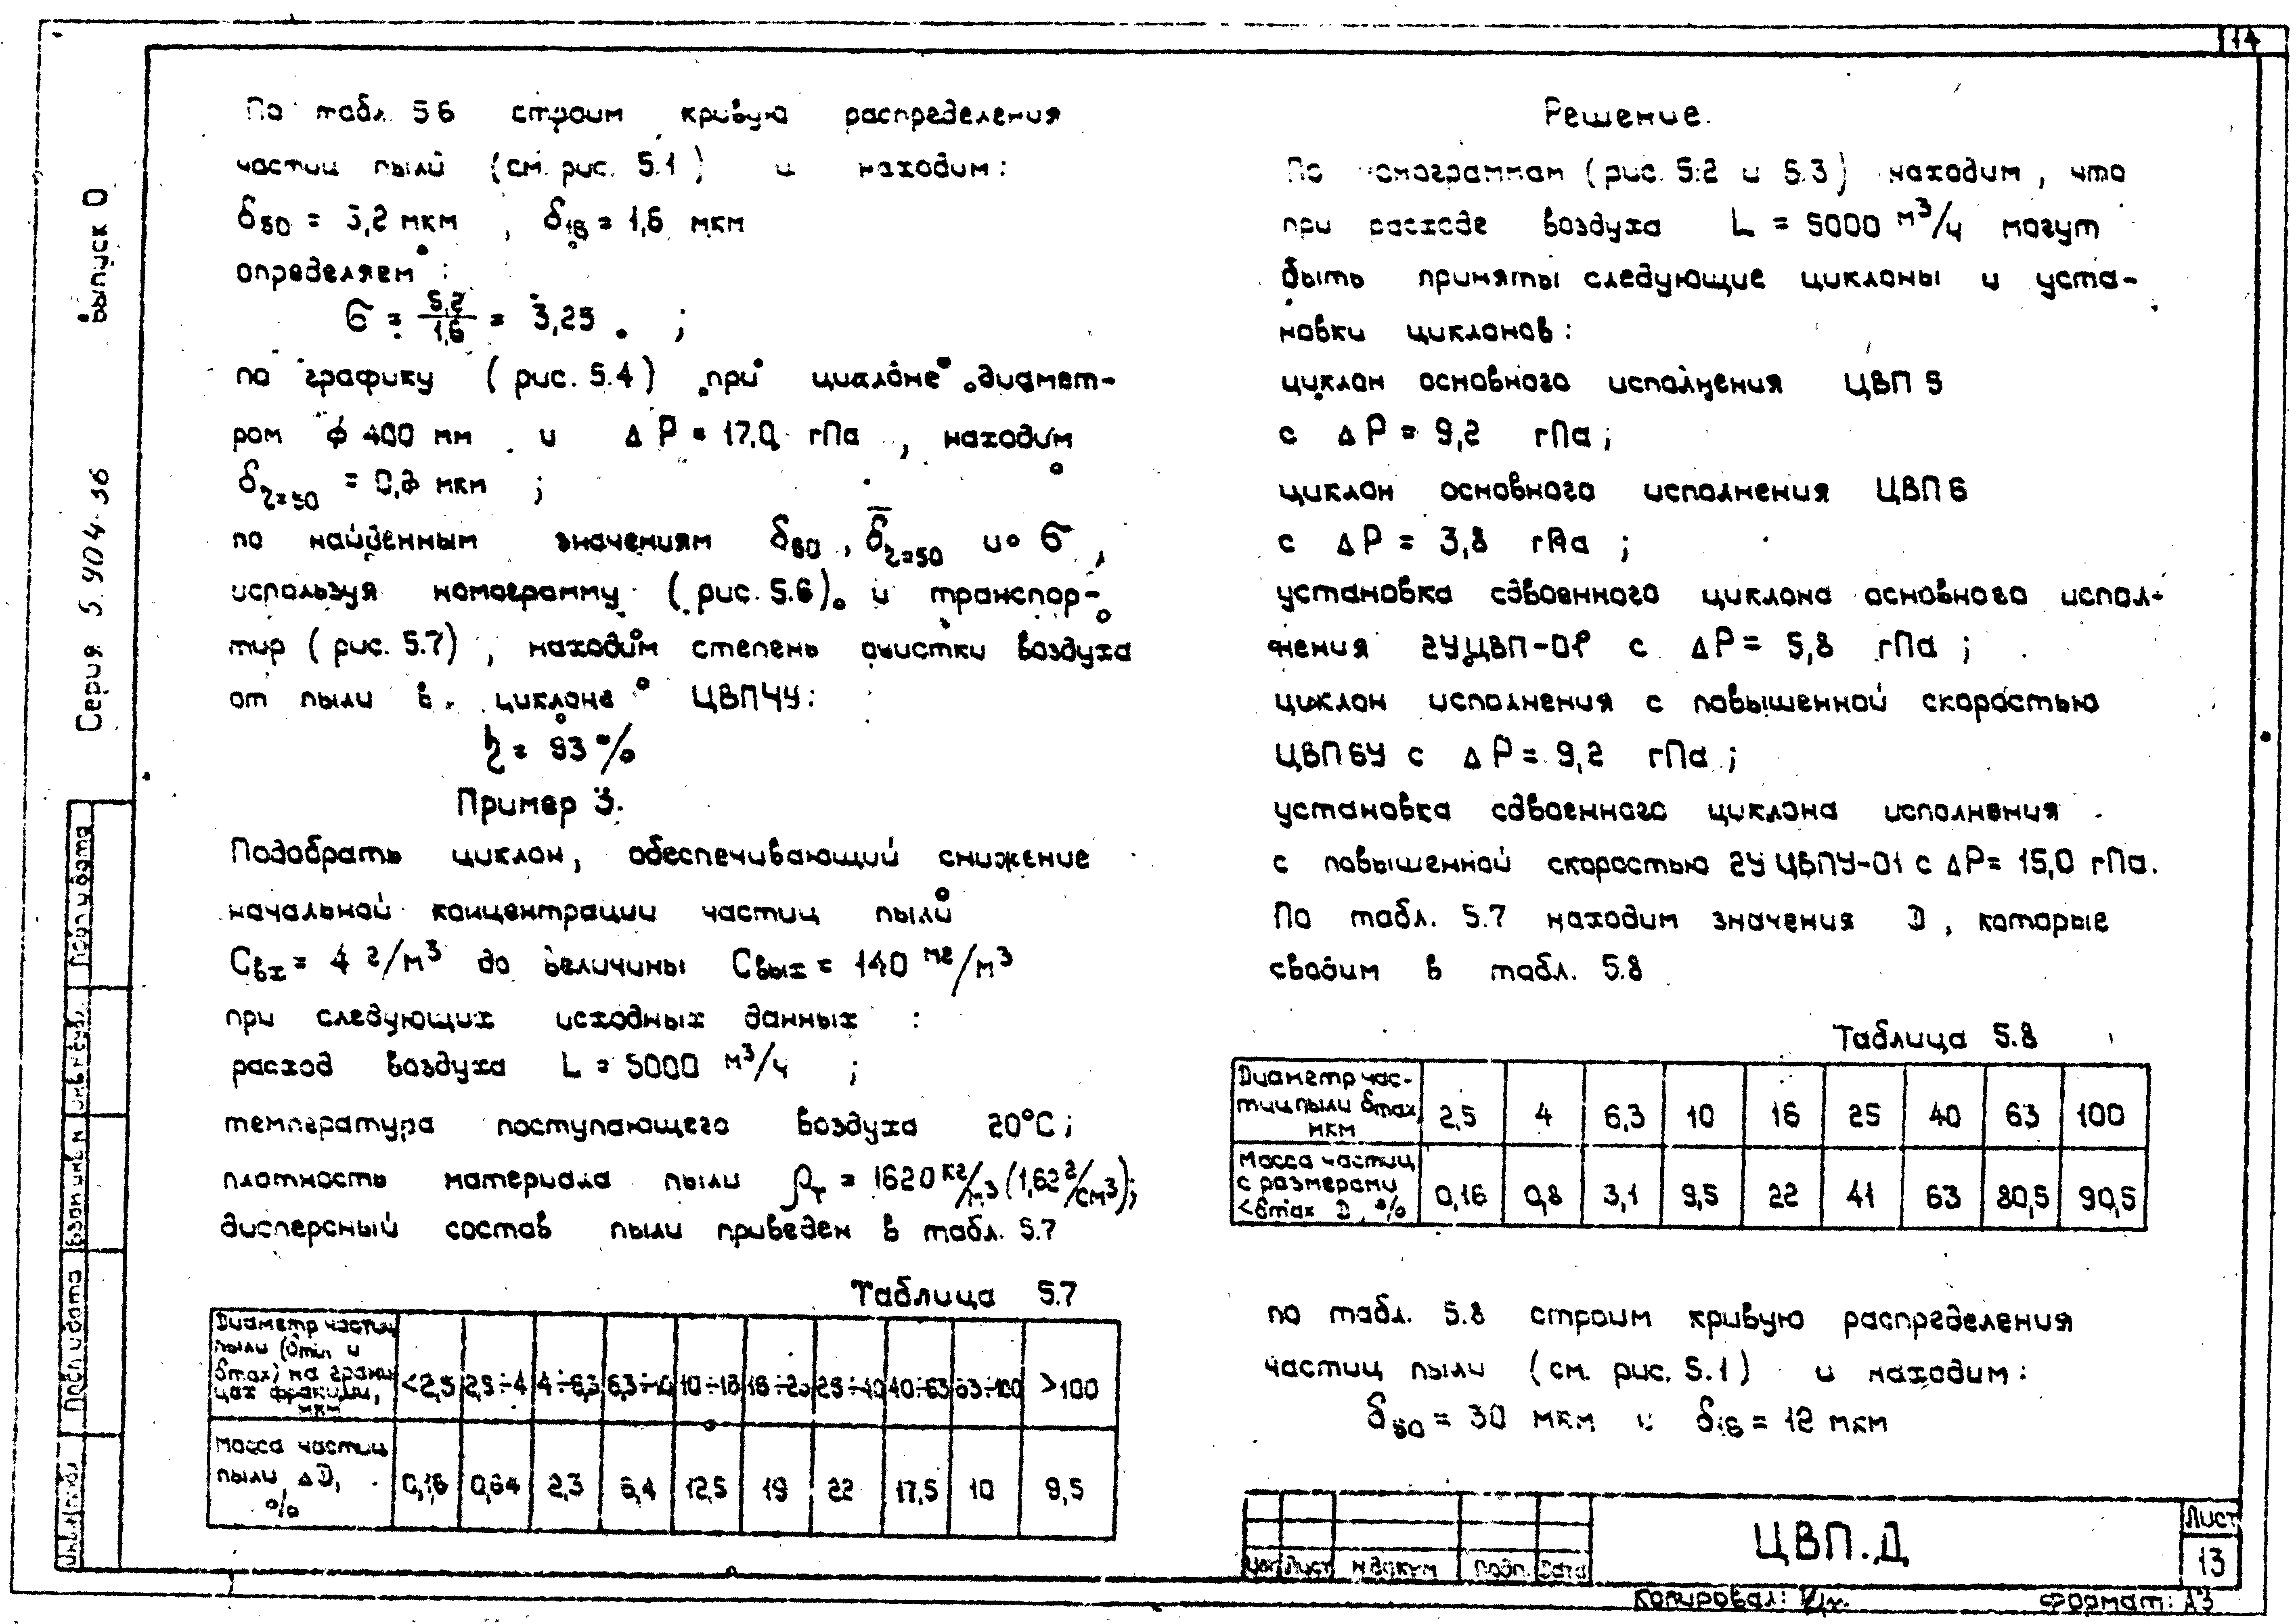 14
По табл. 5.6 строим кривую распределения
частиц пыли (см. рис. 5.1) и находим:
δ50 = 5,2 мкм , δ16 = 1,6 мкм
определяем :
σ = 5,2/1,6 = 3,25 ;
по графику (рис. 5.4) при циклоне диамет-
ром ф 400 мм и ΔP = 17,0 гПа , находим
δη=50 = 0,8 мкм ;
по найденным значениям δ50 , δ̅η=50 и σ ,
используя номограмму (рис. 5.6) и транспор-
тир (рис. 5.7) , находим степень очистки воздуха
от пыли в циклоне ЦВП4У:
η = 93 %
Пример 3.
Подобрать циклон, обеспечивающий снижение
начальной концентрации частиц пыли
Свх = 4 г/м³ до величины Свых = 140 мг/м³
при следующих исходных данных :
расход воздуха L = 5000 м³/ч ;
температура поступающего воздуха 20°С;
плотность материала пыли ρт = 1620 кг/м³ (1,62 г/см³);
дисперсный состав пыли приведен в табл. 5.7
Таблица 5.7
Диаметр частиц
пыли (δmin и
δmax) на грани-
цах фракции,
мкм
<2,5 2,5÷4 4÷6,3 6,3÷10 10÷16 16÷25 25÷40 40÷63 63÷100 >100
Масса частиц
пыли ΔD,
%
0,16 0,64 2,3 6,4 12,5 19 22 17,5 10 9,5
Решение.
По номограммам (рис. 5.2 и 5.3) находим , что
при расходе воздуха L = 5000 м³/ч могут
быть приняты следующие циклоны и уста-
новки циклонов:
циклон основного исполнения ЦВП 5
с ΔP = 9,2 гПа ;
циклон основного исполнения ЦВП 6
с ΔP = 3,8 гПа ;
установка сдвоенного циклона основного испол-
нения 2УЦВП-01 с ΔP = 5,8 гПа ;
циклон исполнения с повышенной скоростью
ЦВП6У с ΔP = 9,2 гПа ;
установка сдвоенного циклона исполнения
с повышенной скоростью 2УЦВПУ-01 с ΔP = 15,0 гПа.
По табл. 5.7 находим значения D , которые
сводим в табл. 5.8
Таблица 5.8
Диаметр час-
тиц пыли δmax,
мкм
2,5 4 6,3 10 16 25 40 63 100
Масса частиц
с размерами
<δmax D, %
0,16 0,8 3,1 9,5 22 41 63 80,5 90,5
по табл. 5.8 строим кривую распределения
частиц пыли (см. рис. 5.1) и находим:
δ50 = 30 мкм и δ16 = 12 мкм
Серия 5.904-36 выпуск 0
Подп. и дата
Взам инв. №
Подп. и дата
Инв. № подл.
Изм Лист № докум Подп. Дата
ЦВП.Д
Лист
13
Копировал:
Формат: А3